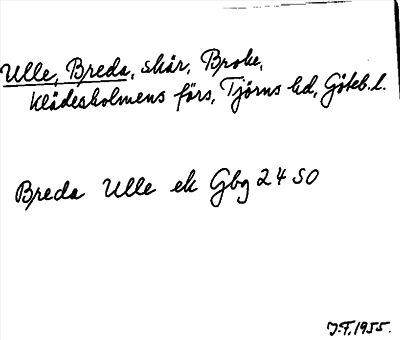 Ulle, Breda, skär, Broke,
Klädesholmens förs, Tjörns hd, Göteb. l.
Breda Ulle ek Gbg 24 SO
J.F. 1955.